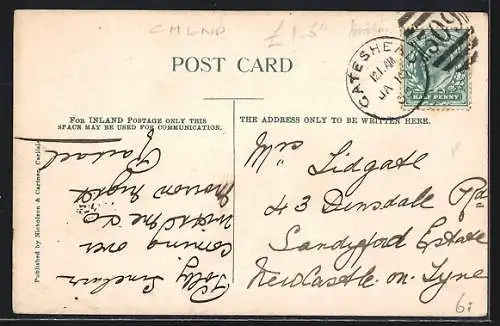 POST CARD
GATESHEAD
AM
JA
309
HALF PENNY
FOR INLAND POSTAGE ONLY THIS
SPACE MAY BE USED FOR COMMUNICATION.
THE ADDRESS ONLY TO BE WRITTEN HERE.
Polly Sinclair
coming over
with me to
morrow night
Rachael
Mrs Lidgate
43 Dinsdale Rd
Sandyford Estate
Newcastle-on-Tyne
Published by Nicholson & Cartner, Carlisle